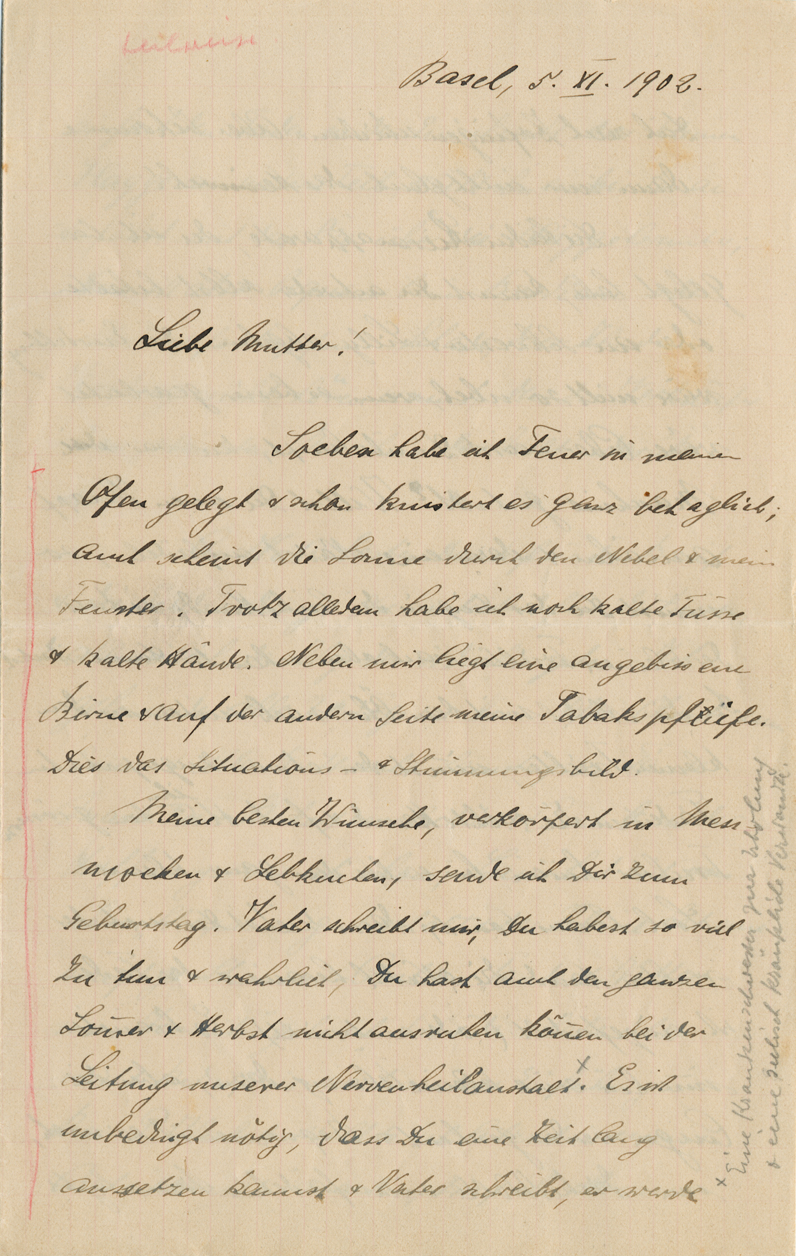 teilweise
Basel, 5. XI. 1902.
Liebe Mutter!
Soeben habe ich Feuer in meinen
Ofen gelegt & schon knistert es ganz behaglich;
auch scheint die Sonne durch den Nebel & mein
Fenster. Trotz alledem habe ich noch kalte Füsse
& kalte Hände. Neben mir liegt eine angebissene
Birne & auf der andern Seite meine Tabakspfeife.
Dies das Situations- & Stimmungsbild.
Meine besten Wünsche, verkörpert in Mess
mocken & Lebkuchen, sende ich Dir zum
Geburtstag. Vater schreibt mir, Du habest so viel
zu tun & wahrlich, Du hast auch den ganzen
Som̄er & Herbst nicht ausruhen kön̄en bei der
Leitung unserer Nervenheilanstalt.x Es ist
unbedingt nötig, dass Du eine Zeit lang
aussetzen kannst & Vater schreibt, er werde
x Eine Krankenschwester zur Erholung
& eine seelisch kränkliche Verwandte.